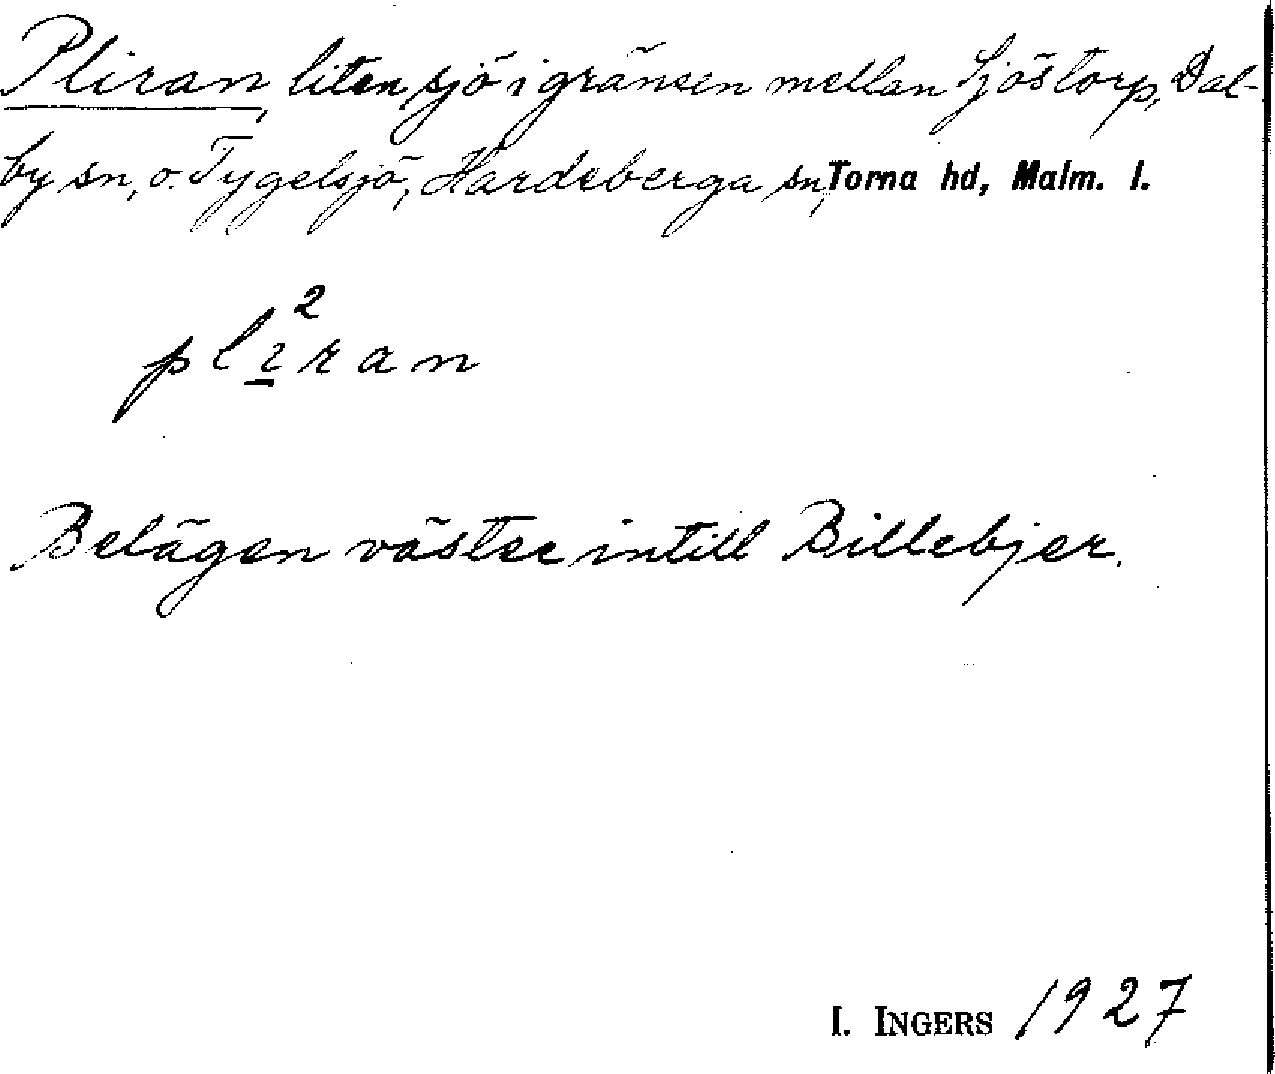 Pliran, liten sjö i gränsen mellan Sjöstorp, Dal-
by sn, o. Tygelsjö, Hardeberga sn, Torna hd, Malm. l.
pli̲²ran
Belägen väster intill Billebjer.
I. INGERS 1927